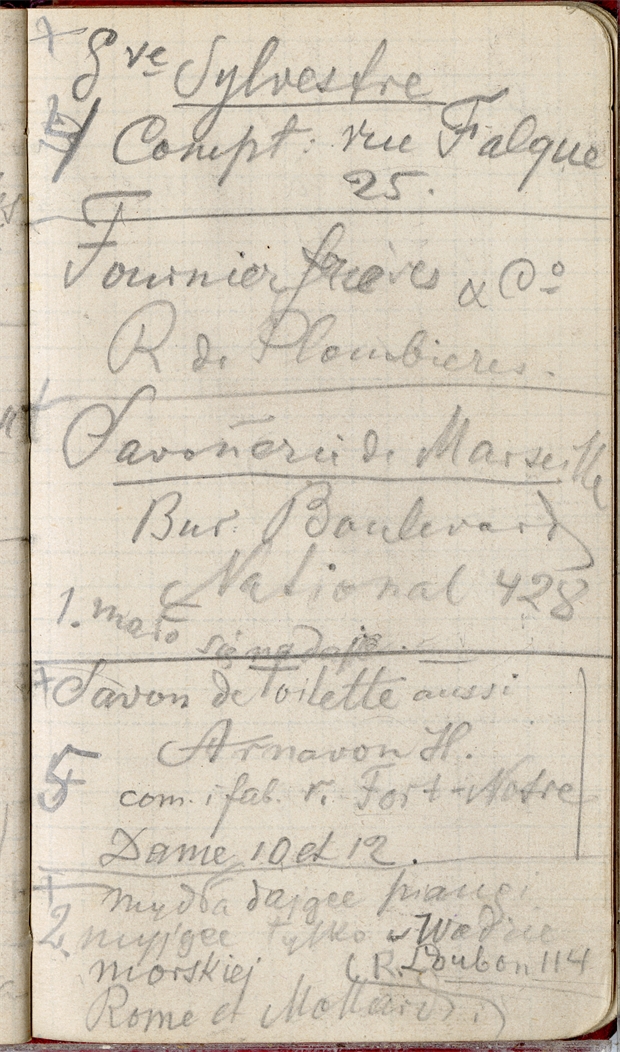 + Sve Sylvestre
5/ Compt: rue Falque
25.
Fournier frères & Co
R de Plombieres.
+ Savonerie de Marseille
Bur. Boulevard
National 428
1. mało się nadaje.
+ Savon de toilette aussi
Arnavon H.
5 com. i fab. r. Fort-Notre
Dame 10 et 12.
+ mydła dające
2. myjące tylko w Wodzie
morskiej (R. Loubon 114
Rome et